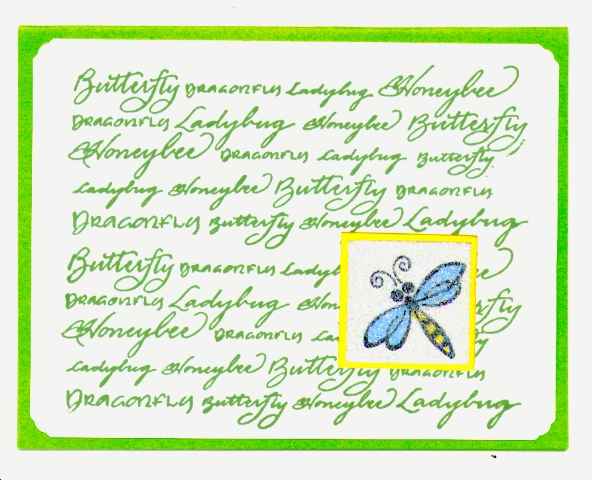 Butterfly Dragonfly Ladybug Honeybee
Dragonfly Ladybug Honeybee Butterfly
Honeybee Dragonfly Ladybug Butterfly
Ladybug Honeybee Butterfly Dragonfly
Dragonfly Butterfly Honeybee Ladybug
Butterfly Dragonfly Ladyb
Dragonfly Ladybug Honeybee Butterfly
Honeybee Dragonfly
Ladybug Honeybee Butterfly Dragonfly
Dragonfly Butterfly Honeybee Ladybug